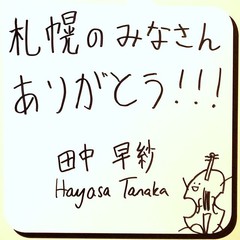 札幌のみなさん
ありがとう!!!
田中 早紗
Hayasa Tanaka